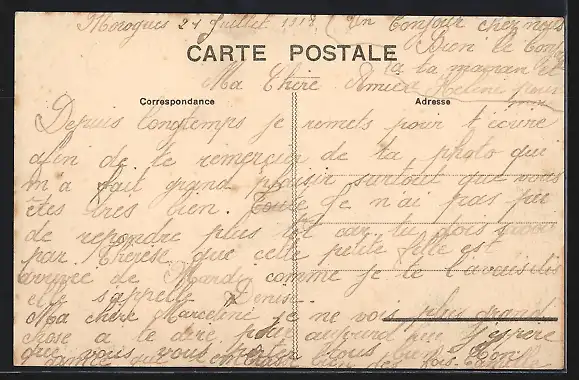 Morogues 21 Juillet 1917 (un bonjour chez nous
Bien le bon
CARTE POSTALE
à ta maman et
Ma Chère Amie Helene pour
moi
Correspondance Adresse
Depuis longtemps je remets pour t'ecrire
afin de te remercier de ta photo qui
m'a fait grand plaisir surtout que vous
êtes tres bien. Je n'ai pas pu
te repondre plus tôt car tu dois savoir
par Therese que cette petite fille est
arrivée de Mardi comme je te l'avais dis
elle s'appelle Denise.
Ma chère Marceline je ne vois plus grand
chose a te dire pour aujourd'hui J'espère
que vous vous portez tous bien Bon